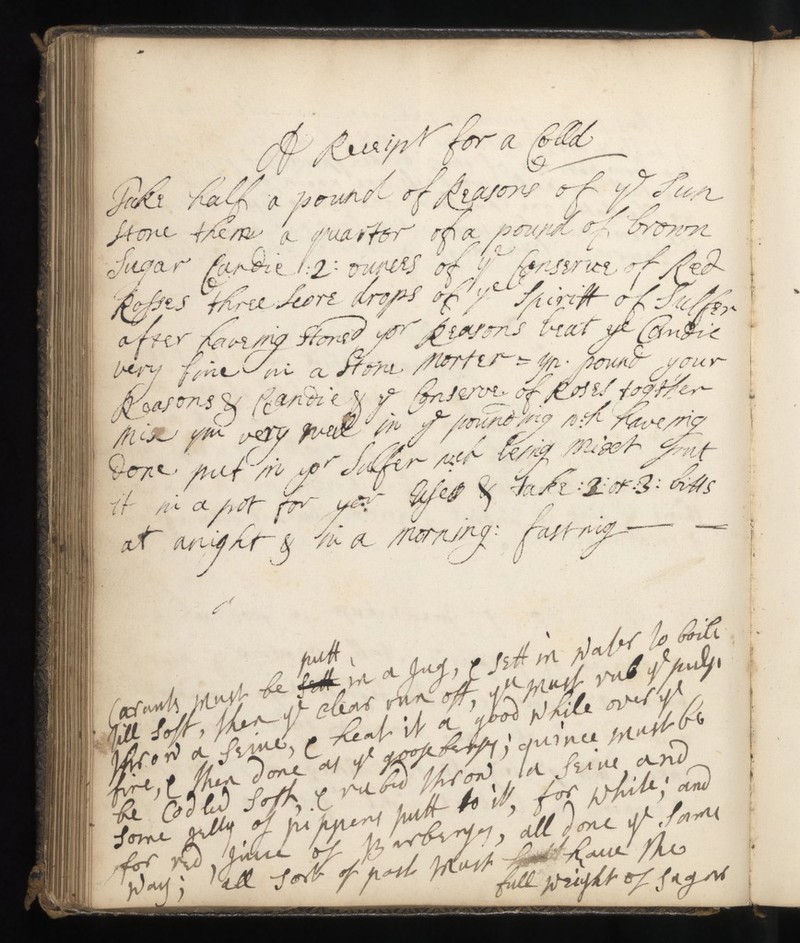 A Receipt for a Colld
Take half a pound of Reasons of ye Sun
stone them a quarter of a pound of brown
Sugar Candie :2: ounces of ye Conserve of Red
Rosses three score drops of ye Spiritt of Sulfer
after haveing stoned yor Reasons beat ye Candie
very fine in a Stone Morter = yn pound your
Reasons & Candie & ye Conserve of Roses togther
Mix ym very well in ye pounding wch haveing
done put in yor Sulfer wch being mixet put
it in a pot for yor Use & take :2: or :3: bitts
at anight & in a morning: fasting
putt
Carants must be sett in a Jug, & sett in water to boile
till soft, then ye clear run off, yn must rub ye pulp
throw a seive, & heat it a good while over ye
fire, & then done as ye gooseberys; quince must be
be Codled soft, & rubid throw a seive and
some gelly of pippens putt to itt, for while; and
for red Juice of Barberys, all done ye same
way; all sort of past must have the
full weight of sugar